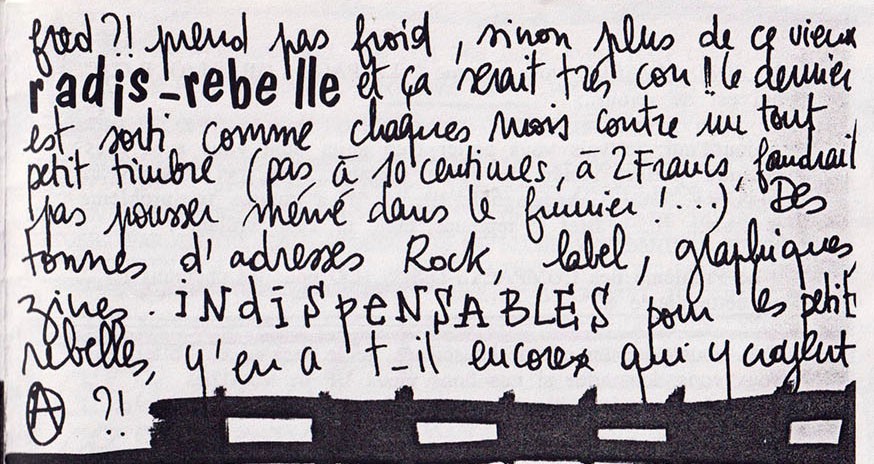 fred ?! prend pas froid, sinon plus de ce vieux
radis_rebelle et ça serait très con ! le dernier
est sorti comme chaques mois contre un tout
petit timbre (pas à 10 centimes, à 2 Francs faudrait
pas pousser mémé dans le fumier !...) Des
tonnes d'adresses Rock, label, graphiques,
zines. iNdiSpENSABLES pour les petit
rebelles, y'en a t_il encore qui y croyent
Ⓐ ?!